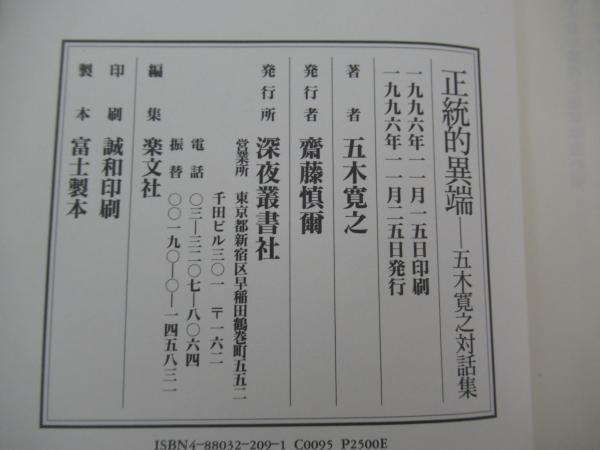 正統的異端——五木寛之対話集
一九九六年一一月一五日印刷
一九九六年一一月二五日発行
著者 五木寛之
発行者 齋藤愼爾
発行所 深夜叢書社
営業所 東京都新宿区早稲田鶴巻町五五二
千田ビル三〇一 〒一六二
電話 〇三—三二〇七—八〇六四
振替 〇〇一九〇—〇—一四五八三一
編集 楽文社
印刷 誠和印刷
製本 富士製本
ISBN4-88032-209-1 C0095 P2500E